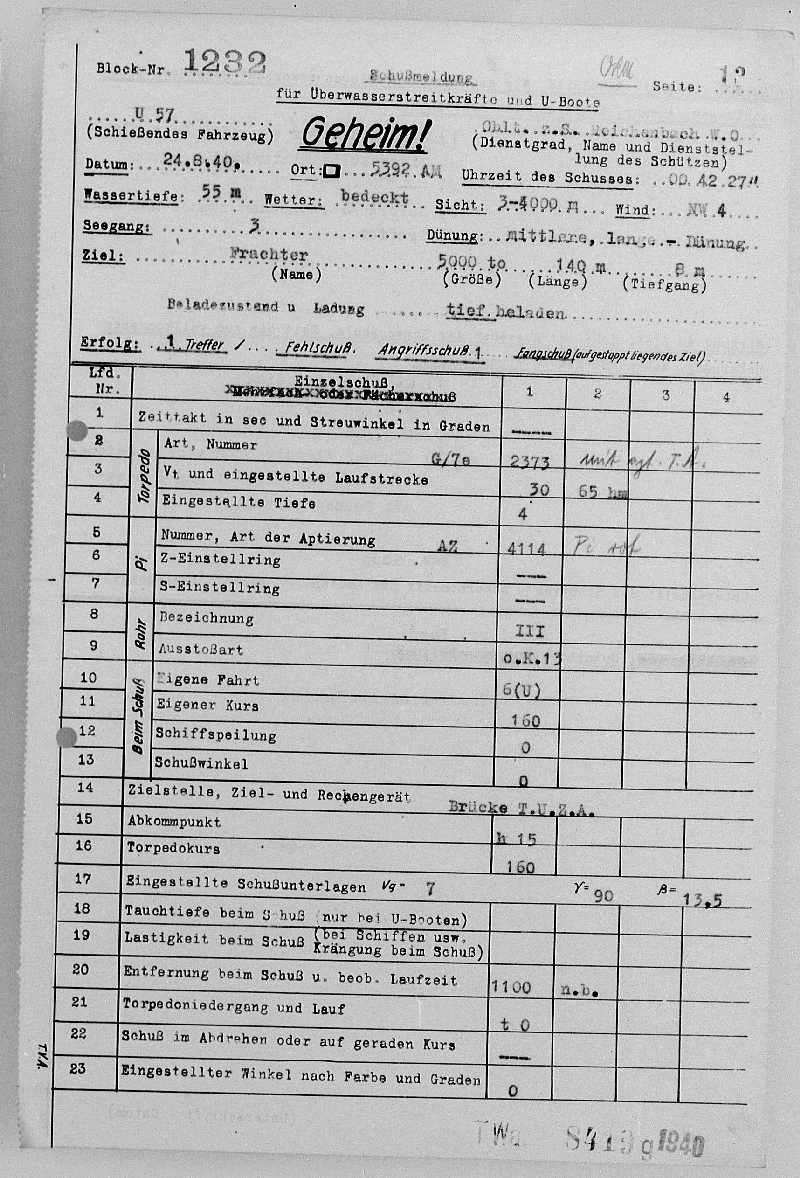 Block-Nr. 1232
Schußmeldung
für Überwasserstreitkräfte und U-Boote
Seite: 12
U 57
(Schießendes Fahrzeug)
Geheim!
Oblt. z.S. Reichenbach W.O.
(Dienstgrad, Name und Dienststel-
lung des Schützen)
Datum: 24.8.40. Ort: 5392 AM Uhrzeit des Schusses: 00.42.27"
Wassertiefe: 55 m Wetter: bedeckt Sicht: 3-4000 m Wind: NW 4
Seegang: 3 Dünung: mittlere, lange - Dünung
Ziel: Frachter 5000 to 140 m 8 m
(Name) (Größe) (Länge) (Tiefgang)
Beladezustand u Ladung tief beladen
Erfolg: 1 Treffer / Fehlschuß. Angriffsschuß 1 Fangschuß (auf gestoppt liegendes Ziel)
Lfd. Nr. Einzelschuß, 1 2 3 4
1 Zeittakt in sec und Streuwinkel in Graden ----
Torpedo
2 Art, Nummer G/7e 2373 mit
3 Vt und eingestellte Laufstrecke 30 65 hm
4 Eingestellte Tiefe 4
Pi
5 Nummer, Art der Aptierung AZ 4114 Pi rot
6 Z-Einstellring ---
7 S-Einstellring ---
Rohr
8 Bezeichnung III
9 Ausstoßart o.K.13
Beim Schuß
10 Eigene Fahrt 6(U)
11 Eigener Kurs 160
12 Schiffspeilung 0
13 Schußwinkel 0
14 Zielstelle, Ziel- und Rechengerät Brücke T.U.Z.A.
15 Abkommpunkt h 15
16 Torpedokurs 160
17 Eingestellte Schußunterlagen Vg= 7 γ= 90 β= 13,5
18 Tauchtiefe beim Schuß (nur bei U-Booten)
19 Lastigkeit beim Schuß (bei Schiffen usw. Krängung beim Schuß)
20 Entfernung beim Schuß u. beob. Laufzeit 1100 n.b.
21 Torpedoniedergang und Lauf t 0
22 Schuß im Abdrehen oder auf geraden Kurs ---
23 Eingestellter Winkel nach Farbe und Graden 0
TVA.
TWa 8413 g 1940